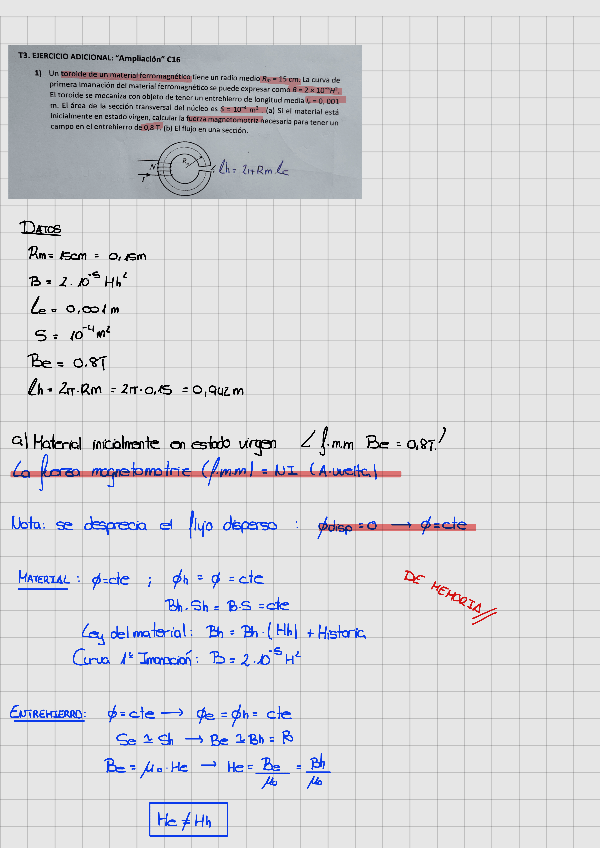 T3. EJERCICIO ADICIONAL: "Ampliación" C16
1) Un toroide de un material ferromagnético tiene un radio medio Rm = 15 cm. La curva de
primera imanación del material ferromagnético se puede expresar como B = 2 × 10⁻⁵H².
El toroide se mecaniza con objeto de tener un entrehierro de longitud media lₑ = 0, 001
m. El área de la sección transversal del núcleo es S = 10⁻⁴ m². (a) Si el material está
inicialmente en estado virgen, calcular la fuerza magnetomotriz necesaria para tener un
campo en el entrehierro de 0,8 T. (b) El flujo en una sección.
N
I
Rm
lh = 2πRm
DATOS
Rm = 15cm = 0,15m
B = 2·10⁻⁵ Hh²
Le = 0,001m
S = 10⁻⁴ m²
Be = 0.8T
lh = 2π·Rm = 2π·0,15 = 0,942m
a) Material inicialmente en estado virgen ¿ f.m.m Be = 0,8T?
La fuerza magnetomotriz (f.m.m) = NI (A·vuelta)
Nota: se desprecia el flujo disperso : ϕdisp = 0 → ϕ = cte
MATERIAL : ϕ=cte ; ϕh = ϕ = cte
Bh·Sh = B·S = cte
Ley del material: Bh = Bh·(Hh) + Historia
Curva 1ª Imanación: B = 2·10⁻⁵H²
DE MEMORIA
ENTREHIERRO: ϕ=cte → ϕe = ϕh = cte
Se ≃ Sh → Be ≃ Bh = B
Be = μ₀·He → He = Be/μ₀ = Bh/μ₀
He ≠ Hh